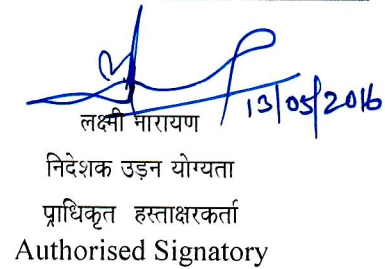 13/05/2016
लक्ष्मी नारायण
निदेशक उड़न योग्यता
प्राधिकृत हस्ताक्षरकर्ता
Authorised Signatory